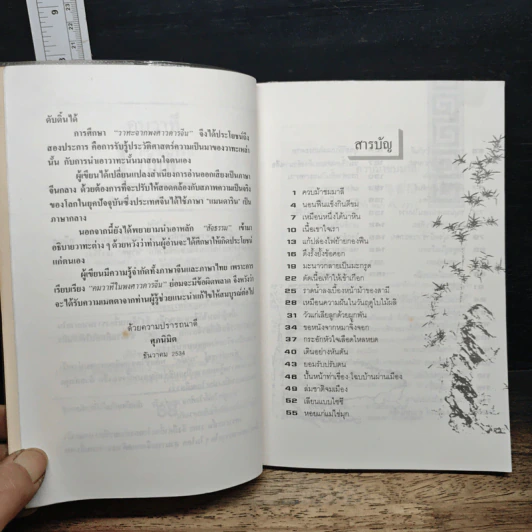 ดับดิ้นได้
การศึกษา "วาทะจากพงศาวดารจีน" จึงได้ประโยชน์ถึง
สองประการ คือการรับรู้ประวัติศาสตร์ความเป็นมาของวาทะเหล่า
นั้น กับการนำเอาวาทะนั้นมาสอนใจตนเอง
ผู้เขียนได้เปลี่ยนแปลงสำเนียงการอ่านออกเสียงเป็นภาษา
จีนกลาง ด้วยต้องการที่จะปรับให้สอดคล้องกับสภาพความเป็นจริง
ของโลกในยุคปัจจุบันซึ่งประเทศจีนได้ใช้ภาษา "แมนดาริน" เป็น
ภาษากลาง
นอกจากนี้ยังได้พยายามนำเอาหลัก "สัจธรรม" เข้ามา
อธิบายวาทะต่าง ๆ ด้วยหวังว่าท่านผู้อ่านจะได้ศึกษาให้เกิดประโยชน์
แก่ตนเอง
ผู้เขียนมีความรู้จำกัดทั้งภาษาจีนและภาษาไทย เพราะฉะนั้น
เรียบเรียง "คมวาทีในพงศาวดารจีน" ย่อมจะมีข้อผิดพลาด จึงหวังว่า
จะได้รับความเมตตาจากท่านผู้รู้ช่วยแนะนำแก้ไขให้สมบูรณ์ต่อไป
ด้วยความปรารถนาดี
ศุภนิมิต
ธันวาคม 2534
สารบัญ
1 ควบม้าชมมาลี
4 นอนฟืนแข็งกินดีขม
7 เหมือนหนึ่งได้นาหิน
10 เนื้อเขาใจเรา
13 แก้ปล่องไฟย้ายกองฟืน
16 ดึงรั้งยั้งข้อศอก
19 มะนาวกลายเป็นมะกรูด
22 ตัดเนื้อเท้าให้เข้าเกือก
25 ราดน้ำลงเบื้องหน้าม้าของสามี
28 เหมือนความฝันในวันฤดูใบไม้ผลิ
31 วัวแก่เลียลูกด้วยผูกพัน
34 ขอหนังจากหมาจิ้งจอก
37 กระอักหัวใจเลือดไหลหยด
40 เดินอย่างหันตัน
43 ยอมรับปรับตน
46 ปั้นหน้าท่าเขื่อง โฉบบ้านผ่านเมือง
49 ล่มชาติจมเมือง
52 เลียนแบบไซซี
55 หอยแก่แม่ไข่มุก